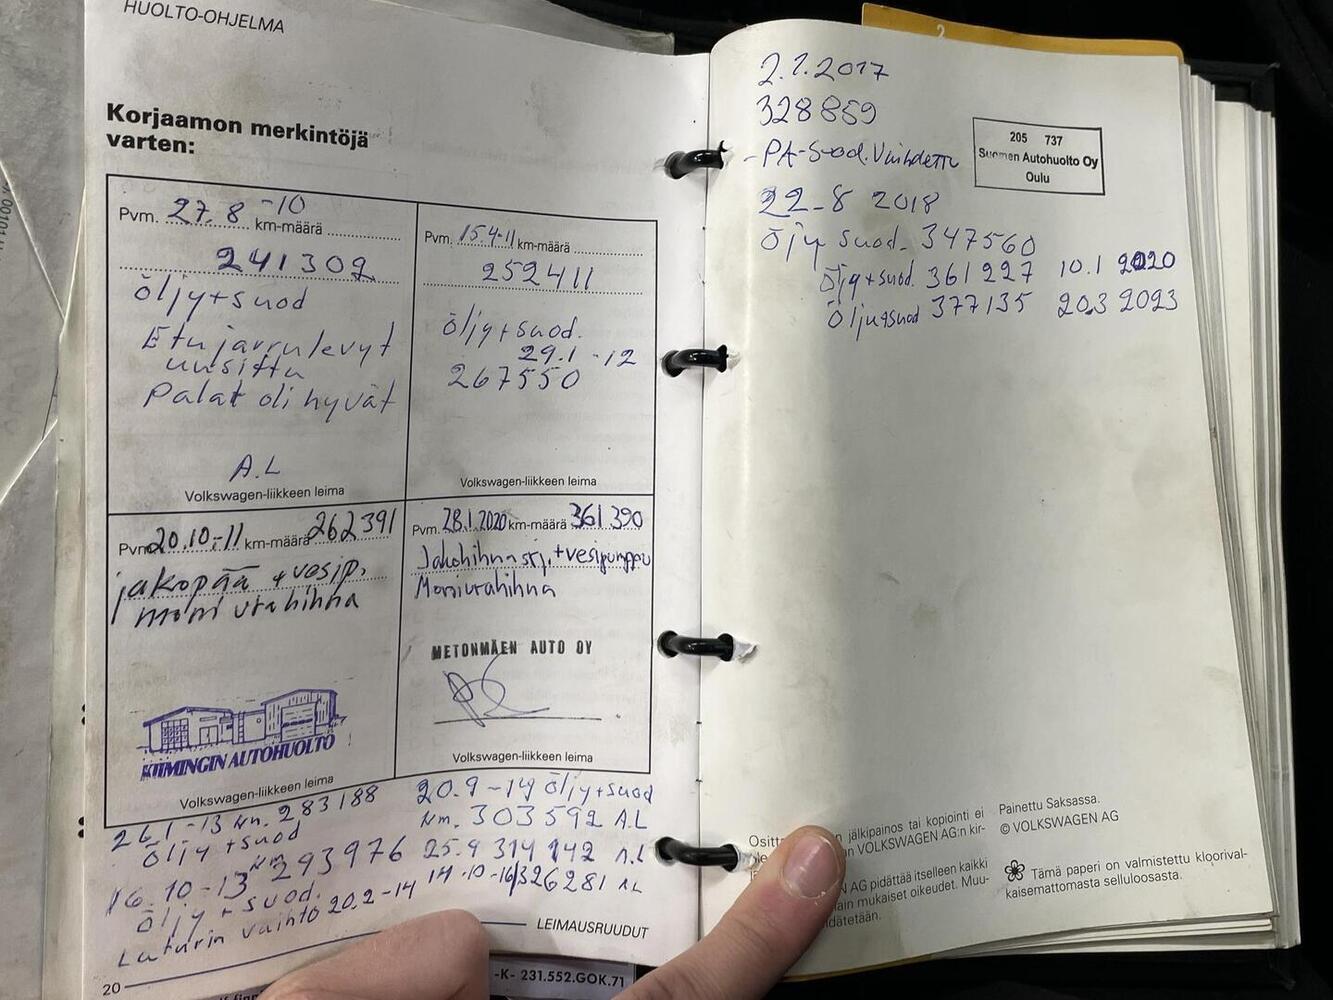 HUOLTO-OHJELMA
Korjaamon merkintöjä
varten:
Pvm. 27.8 -10 km-määrä
241302
öljy+suod
Etujarrulevyt
uusittu
Palat oli hyvät
A.L
Volkswagen-liikkeen leima
Pvm. 15.4-11 km-määrä
252411
öljy+suod.
29.1 -12
267550
Volkswagen-liikkeen leima
Pvm. 20.10.-11 km-määrä 262391
jakopää + vesip.
moniurahihna
KIIMINGIN AUTOHUOLTO
Volkswagen-liikkeen leima
Pvm. 28.1.2020 km-määrä 361390
Jakohihna srj. + vesipumppu
Moniurahihna
METONMÄEN AUTO OY
Volkswagen-liikkeen leima
26.1-13 km. 283188
öljy +suod
16.10-13 km 293976
öljy + suod.
Laturin vaihto 20.2-14
20.9-14 öljy+suod
km. 303592 A.L
25.9 314142 A.L
14.10-16 326281 AL
LEIMAUSRUUDUT
20
-K- 231.552.GOK.71
2
2.2.2017
328859
-PA-suod. Vaihdettu
205 737
Suomen Autohuolto Oy
Oulu
22-8 2018
öljy suod. 347560
öljy+suod. 361227 10.1 2020
öljy+suod 377135 20.3 2023
jälkipainos tai kopiointi ei
VOLKSWAGEN AG:n kir-
AG pidättää itselleen kaikki
mukaiset oikeudet. Muu-
Painettu Saksassa.
© VOLKSWAGEN AG
Tämä paperi on valmistettu kloorival-
kaisemattomasta selluloosasta.